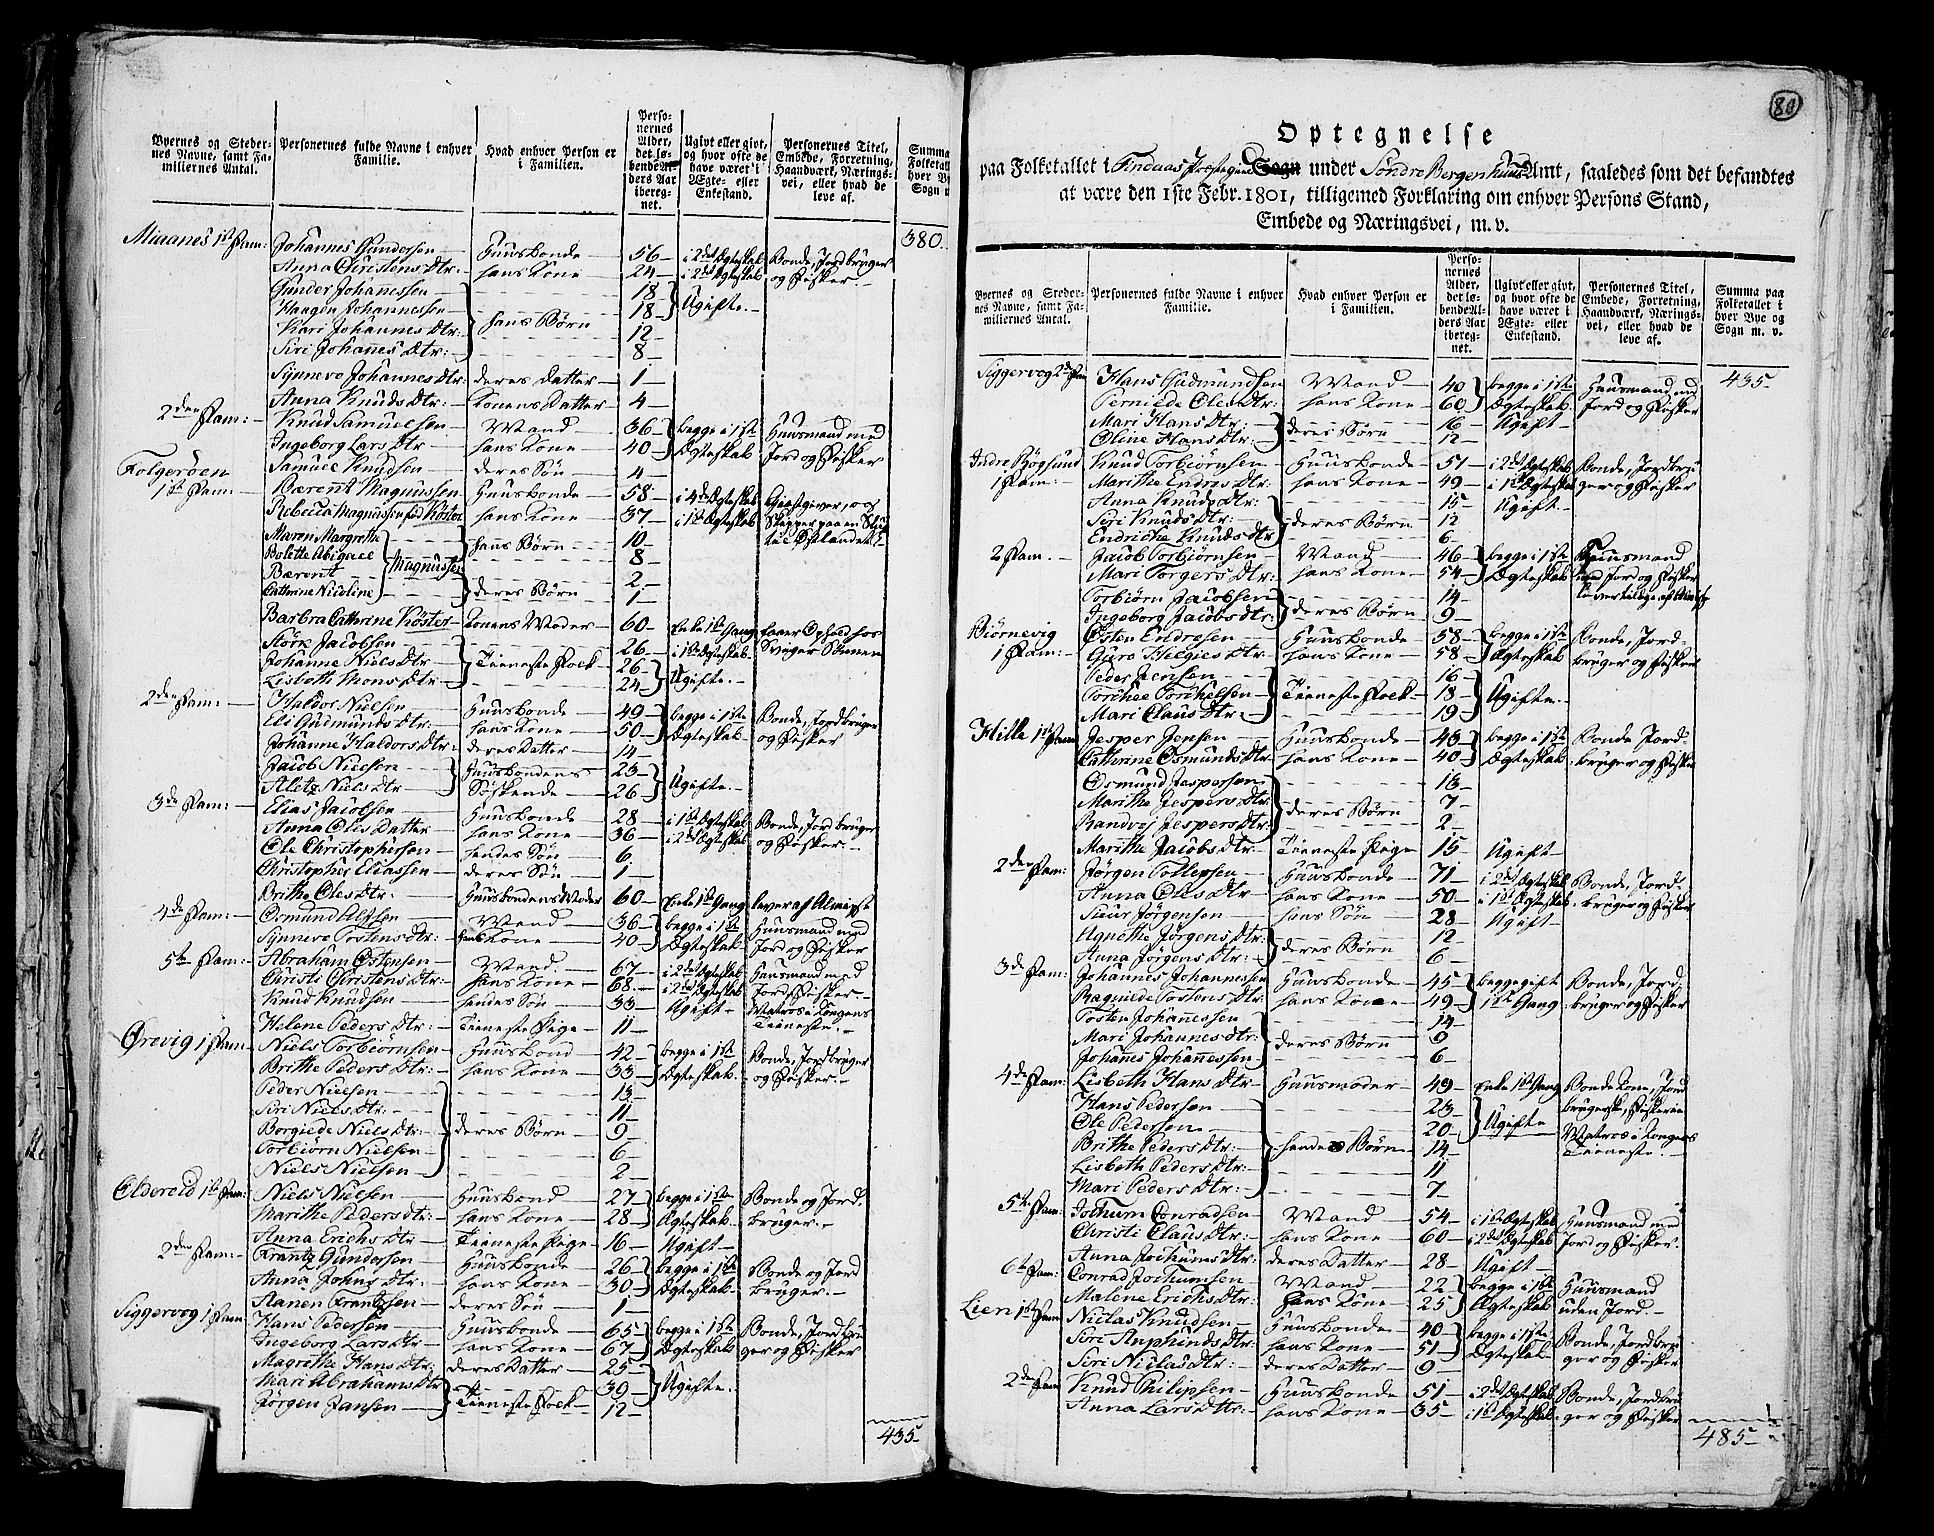 Byernes og Steder-
nes Navne, samt Fa-
miliernes Antal.
Personernes fulde Navne i enhver
Familie.
Hvad enhver Person er
i Familien.
Perso-
nernes
Alder,
det lø-
bende Al-
ders Aar
ibereg-
net.
Ugivt eller givt,
og hvor ofte de
have været i
Ægte- eller
Enkestand.
Personernes Titel,
Embede, Forretning,
Haandværk, Nærings-
vei, eller hvad de
leve af.
Summa
Folketal
hver By
Sogn
380.
Miuanes 1ste Fam: Johannes Gundersen Huusbonde 56 i 2det Ægteskab Bonde, Jordbruger
Anna Christens Dtr: hans Kone 24 i 2det Ægteskab og Fisker.
Gunder Johanessen 18 Ugifte.
Haagen Johannessen 18
Kari Johannes Dtr: hans Børn 12
Siri Johanes Dtr: 8
Synnevo Johannes Dtr: deres Datter 1
Anna Knuds Dtr: Konens Datter 4
2den Fam: Knud Samuelsen Mand 36 begge i 1ste Huusmand med
Ingeborg Lars Dtr hans Kone 40 Ægteskab Jord og Fisker
Samuel Knudsen deres Søn 4
Folgerøen
1ste Fam: Bærent Magnussen Huusbonde 58 i 4de Ægteskab Giestgiver, og
Rebecca Magnussen fød Köster hans Kone 37 i 1ste Ægteskab Skipper paa en
Maren Margrethe 10
Bolette Abigael Magnussen hans Børn 8
Bærent 2
Cathrine Nicoline deres Børn 1
Barbra Cathrine Köster Konens Moder 60 Enke 1ste Gang faaer Ophold hos
Størk Jacobsen 26 i 1ste Ægteskab Sviger Sønnen
Johanne Niels Dtr Tieneste Folk 26 Ugifte.
Lisbeth Mons Dtr 24
2den Fam: Haldor Nielsen Huusbonde 49 begge i 1ste Bonde, Jordbruger
Eli Gudmunds Dtr: hans Kone 50 Ægteskab og Fisker
Johanne Haldors Dtr: deres Datter 14
Jacob Nielsen Huusbondens 23 Ugifte.
Aletz Niels Dtr Søskende 26
3de Fam: Elias Jacobsen Huusbonde 28 i 1ste Ægteskab Bonde, Jordbruger
Anna Oles Datter hans Kone 36 i 2det Ægteskab og Fisker.
Ole Christophersen hendes Søn 6
Christopher Eliassen deres Søn 1
Brithe Oles Dtr: Huusbondens Moder 60 Enke 1ste Gang lever af Almisse
4de Fam: Osmund Mand 36 begge i 1ste Huusmand med
Synneve Tostens Dtr: hans Kone 40 Ægteskab Jord og Fisker
5te Fam: Abraham Ostensen Mand 67 i 2det Ægteskab Huusmand med
Christi Christens Dtr: hans Kone 68 i 2det Ægteskab Jord, Fisker.
Knud Knudsen hendes Søn 33 Ugift Matros i Kongens
Helene Peders Dtr: Tieneste Pige 11 Tieneste.
Ørevig 1 Fam Niels Torbiørnsen Huusbond 42 begge i 1ste Bonde, Jordbruger
Brithe Peders Dtr: hans Kone 33 Ægteskab og Fisker.
Peder Nielsen 13
Siri Niels Dtr: 11
Borgilde Niels Dtr: deres Børn 9
Torbiørn Nielsen 6
Niels Nielsen 2
Eldereid 1ste Fam: Niels Nielsen Huusbond 27 begge i 1ste Bonde og Jord
Marithe Peders Dtr: hans Kone 28 Ægteskab bruger.
Anna Erichs Dtr Tieneste Pige 16 Ugift
2den Fam: Frantz Gundersen Huusbonde 26 begge i 1ste Bonde og Jord
Anna Johns Dtr: hans Kone 30 Ægteskab bruger.
Hanen Frantzsen deres Søn 1
Siggervog 1 Fam Hans Pedersen Huusbonde 65 begge i 1ste Bonde, Jordbru
Ingeborg Lars Dtr hans Kone 67 Ægteskab ger og Fisker
Magrethe Hans Dtr: deres Datter 25
Mari Abrahams Dtr Tieneste Folk 39 Ugifte.
Jørgen Jansen 12
435
80
Optegnelse
paa Folketallet i Findaas Præstegield Sogn under Søndre Bergenhuus Amt, saaledes som det befandtes
at være den 1ste Febr. 1801, tilligemed Forklaring om enhver Persons Stand,
Embede og Næringsvei, m. v.
Byernes og Steder-
nes Navne, samt Fa-
miliernes Antal.
Personernes fulde Navne i enhver
Familie.
Hvad enhver Person er
i Familien.
Perso-
nernes
Alder,
det lø-
bende Al-
ders Aar
ibereg-
net.
Ugivt eller givt,
og hvor ofte de
have været i
Ægte- eller
Enkestand.
Personernes Titel,
Embede, Forretning,
Haandværk, Nærings-
vei, eller hvad de
leve af.
Summa paa
Folketallet i
hver Bye og
Sogn m. v.
435
Siggervog 2de Fam Hans Gudmundsen Mand 40 begge i 1ste Huusmand med
Pernilde Oles Dtr: hans Kone 60 Ægteskab Jord og Fisker
Mari Hans Dtr: deres Børn 16 Ugift
Oline Hans Dtr: 12
Indre Røgsund Knud Torbiørnsen Huusbonde 51 i 2det Ægteskab Bonde, Jordbru
1 Fam: Marithe Endres Dtr: hans Kone 49 i 1ste Ægteskab ger og Fisker
Anna Knuds Dtr: 15 Ugift
Siri Knuds Dtr: deres Børn 12
Endriche Knuds Dtr 6
2 Fam. Jacob Torbiørnsen Mand 46 begge i 1ste Huusmand
Mari Torgers Dtr: hans Kone 54 Ægteskab med Jord og Fisker
Torbiørn Jacobsen 14
Ingeborg Jacobs Dtr: deres Børn 9
Biørnevig Osten Endresen Huusbonde 58 begge i 1ste Bonde, Jord-
1 Fam: Guro Helgies Dtr hans Kone 58 Ægteskab bruger og Fisker
Peder Jensen 16
Torchel Torchelsen Tieneste Folk 18 Ugifte.
Mari Claus Dtr: 19
Hille 1ste Fam Jesper Jensen Huusbonde 43 begge i 1ste Bonde Jord-
Cathrine Osmunds Dtr hans Kone 40 Ægteskab bruger og Fisker
Osmund Jespersen 13
Marithe Jespers Dtr: deres Børn 7
Randvej Jespers Dtr: 2
Marithe Jacobs Dtr: Tieneste Pige 15 Ugift
2den Fam: Jørgen Tollepsen Huusbonde 71 i 2det Ægteskab Bonde, Jord-
Anna Oles Dtr hans Kone 50 i 1ste Ægteskab bruger og Fisker
Siur Jørgensen hans Søn 28 Ugift
Agnethe Jørgens Dtr: deres Børn 12
Anna Jørgens Dtr: 6
3de Fam: Johannes Johannesen Huusbonde 45 begge gift Bonde, Jord-
Ragnilde Tostens Dtr: hans Kone 49 1ste Gang bruger og Fisker
Tosten Johanessen 14
Mari Johannes Dtr: deres Børn 9
Johanes Johanessen 6
4de Fam: Lisbeth Hans Dtr Huusmoder 49 Enke 1ste Gang Bonde Kone, Jord
Hans Pedersen 23 Ugifte brugerske, Fiskerie
Ole Pedersen 20 Matros i Kongens
Brithe Peders Dtr: hendes Børn 14 Tieneste.
Lisbeth Peders Dtr: 11
Mari Peders Dtr: 7
5te Fam: Jochum Conradsen Mand 54 i 1ste Ægteskab Huusmand med
Christi Claus Dtr: hans Kone 60 i 2det Ægteskab Jord og Fisker.
Anna Jochums Dtr: deres Datter 28 Ugift
6te Fam: Conrad Jochumsen Mand 22 begge i 1ste Huusmand
Malene Erichs Dtr: hans Kone 25 Ægteskab uden Jord.
Lien 1ste Fam Niclas Knudsen Huusbonde 40 begge i 1ste Bonde, Jordbru-
Siri Amphinds Dtr: hans Kone 51 Ægteskab ger og Fisker
Siri Niclas Dtr: deres Datter 9
2de Fam Knud Philipsen Huusbonde 51 i 2det Ægteskab Bonde, Jordbru
Anna Lars Dtr: hans Kone 35 i 1ste Ægteskab ger og Fisker
485